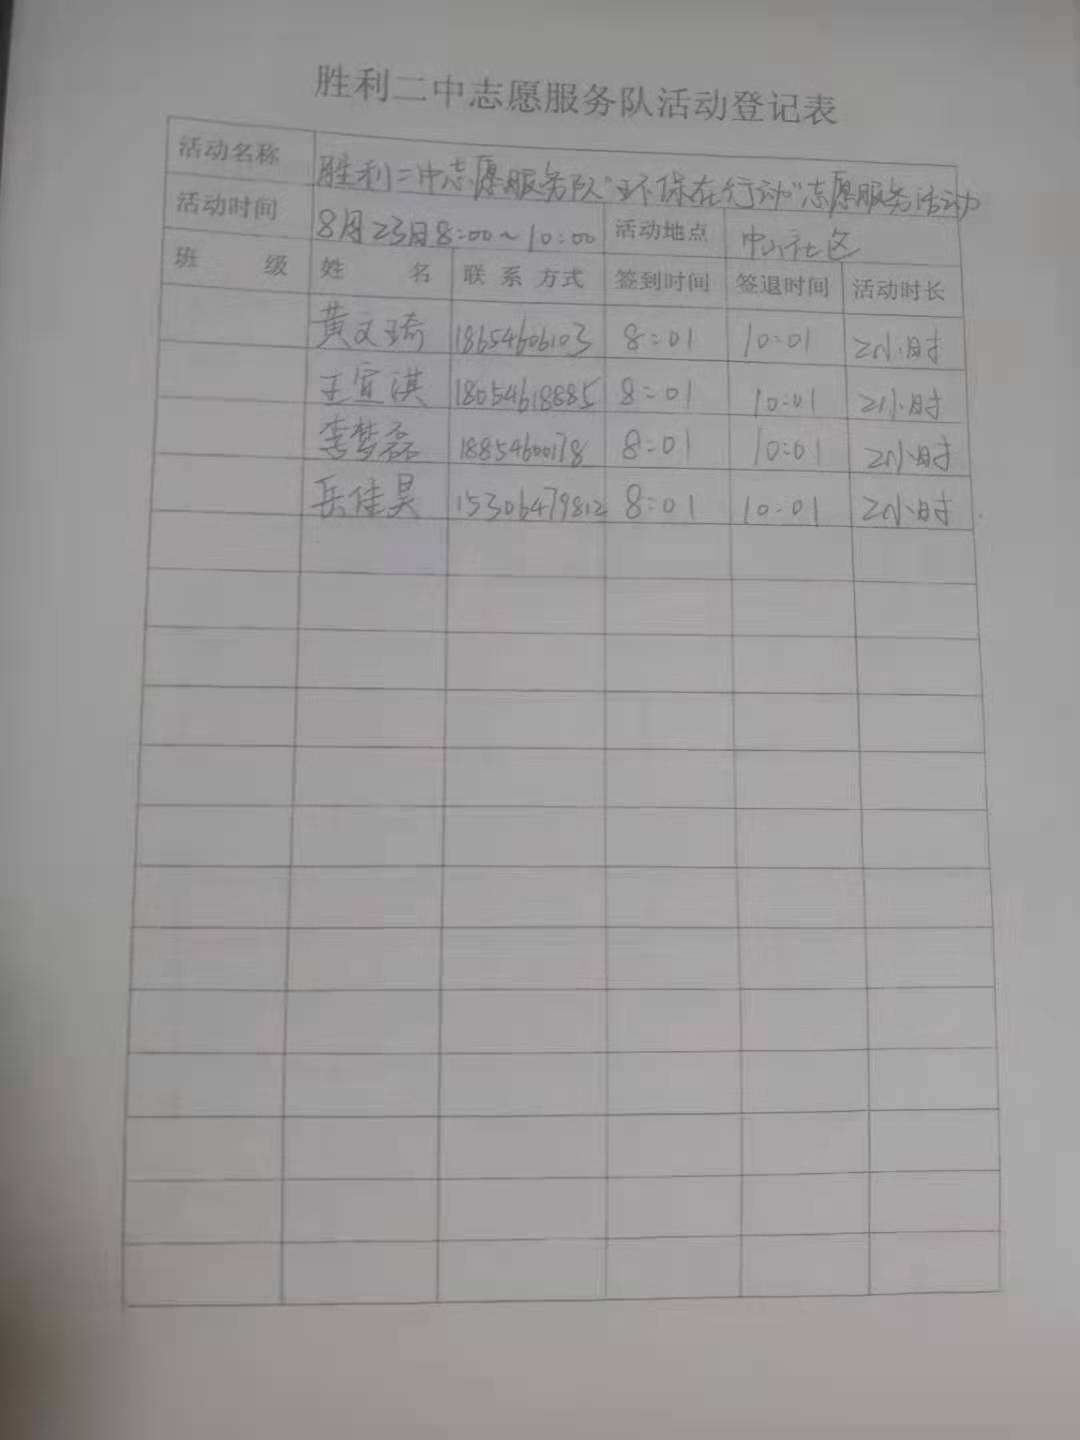 胜利二中志愿服务队活动登记表
活动名称 胜利二中志愿服务队“环保在行动”志愿服务活动
活动时间 8月23日8:00~10:00 活动地点 中山社区
班 级 姓 名 联系方式 签到时间 签退时间 活动时长
黄文琦 18654606103 8:01 10:01 2小时
王宜淇 18054618885 8:01 10:01 2小时
李梦磊 18854600178 8:01 10:01 2小时
岳佳昊 15306479812 8:01 10:01 2小时